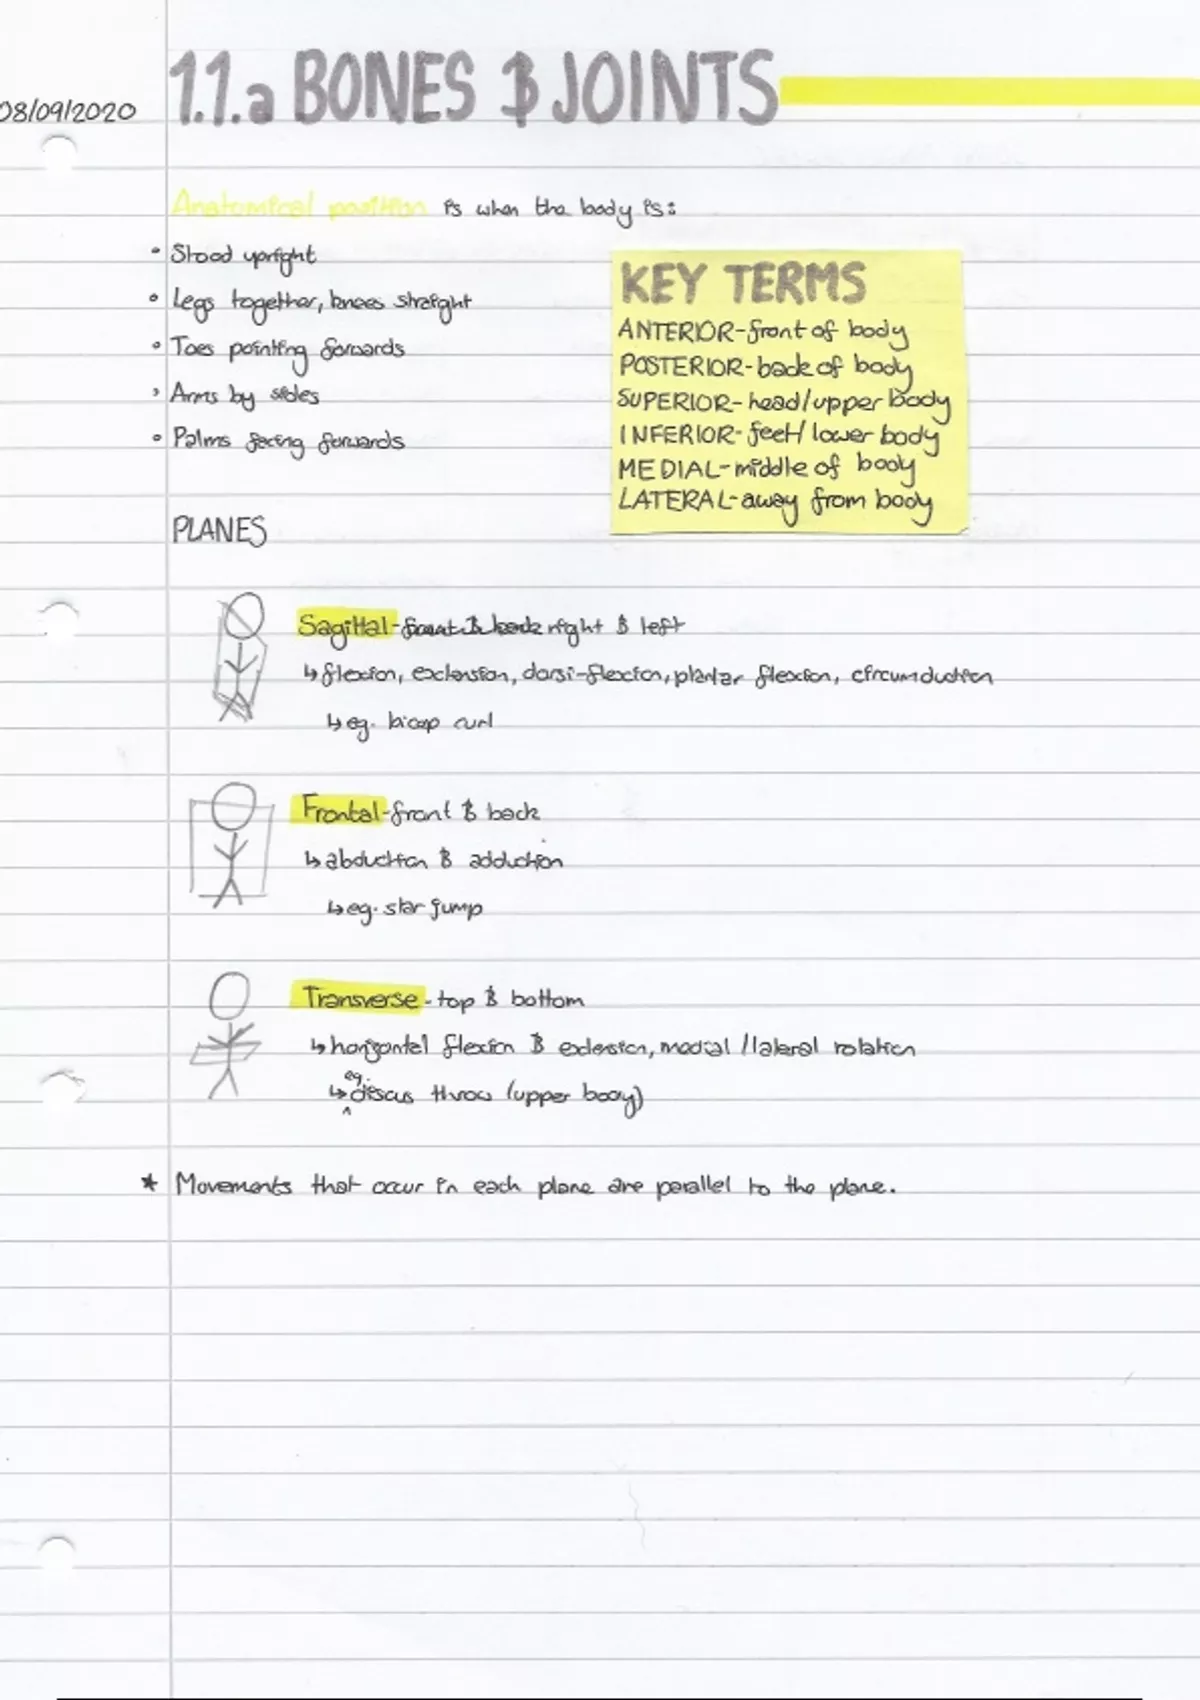 08/09/2020
1.1.a BONES & JOINTS
Anatomical position is when the body is:
• Stood upright
• Legs together, knees straight
• Toes pointing forwards
• Arms by sides
• Palms facing forwards
KEY TERMS
ANTERIOR-front of body
POSTERIOR-back of body
SUPERIOR-head/upper body
INFERIOR-feet/lower body
MEDIAL-middle of body
LATERAL-away from body
PLANES
Sagittal-front & back right & left
↳flexion, extension, dorsi-flexion, plantar flexion, circumduction
↳eg. bicep curl
Frontal-front & back
↳abduction & adduction
↳eg. star jump
Transverse-top & bottom
↳horizontal flexion & extension, medial/lateral rotation
↳eg. discus throw (upper body)
* Movements that occur in each plane are parallel to the plane.